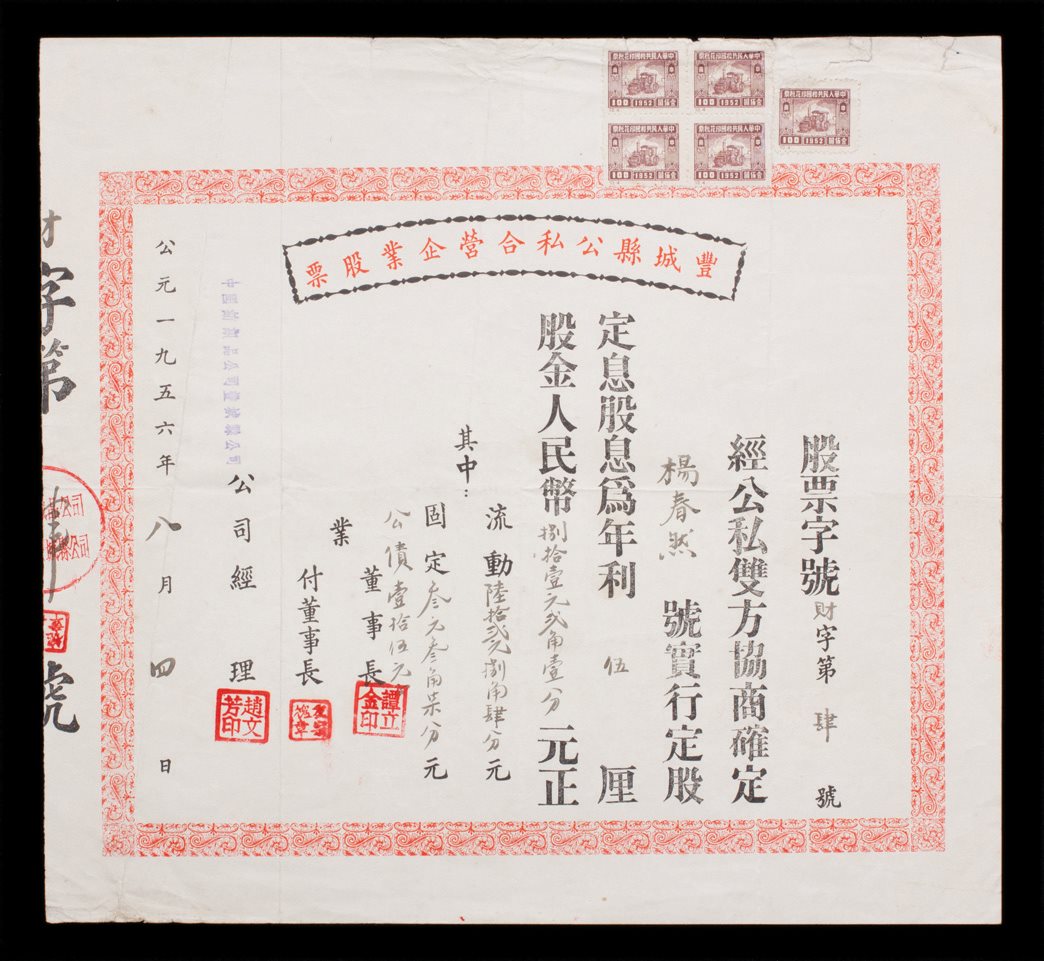 中華人民共和國印花稅票
100 1952
中華人民共和國印花稅票
100 1952
中華人民共和國印花稅票
100 1952
中華人民共和國印花稅票
100 1952
中華人民共和國印花稅票
100 1952
豐城縣公私合營企業股票
股票字號財字第肆號
經公私雙方協商確定
楊春然號實行定股
定息股息爲年利伍厘
股金人民幣捌拾壹元弍角壹分元正
其中：
流動陸拾弍元捌角肆分元
固定叁元叁角柒分元
公債壹拾伍元
業
董事長
譚立金印
付董事長
公司經理
趙文芳印
公司豐城縣公司
公元一九五六年八月四日
財字第
號